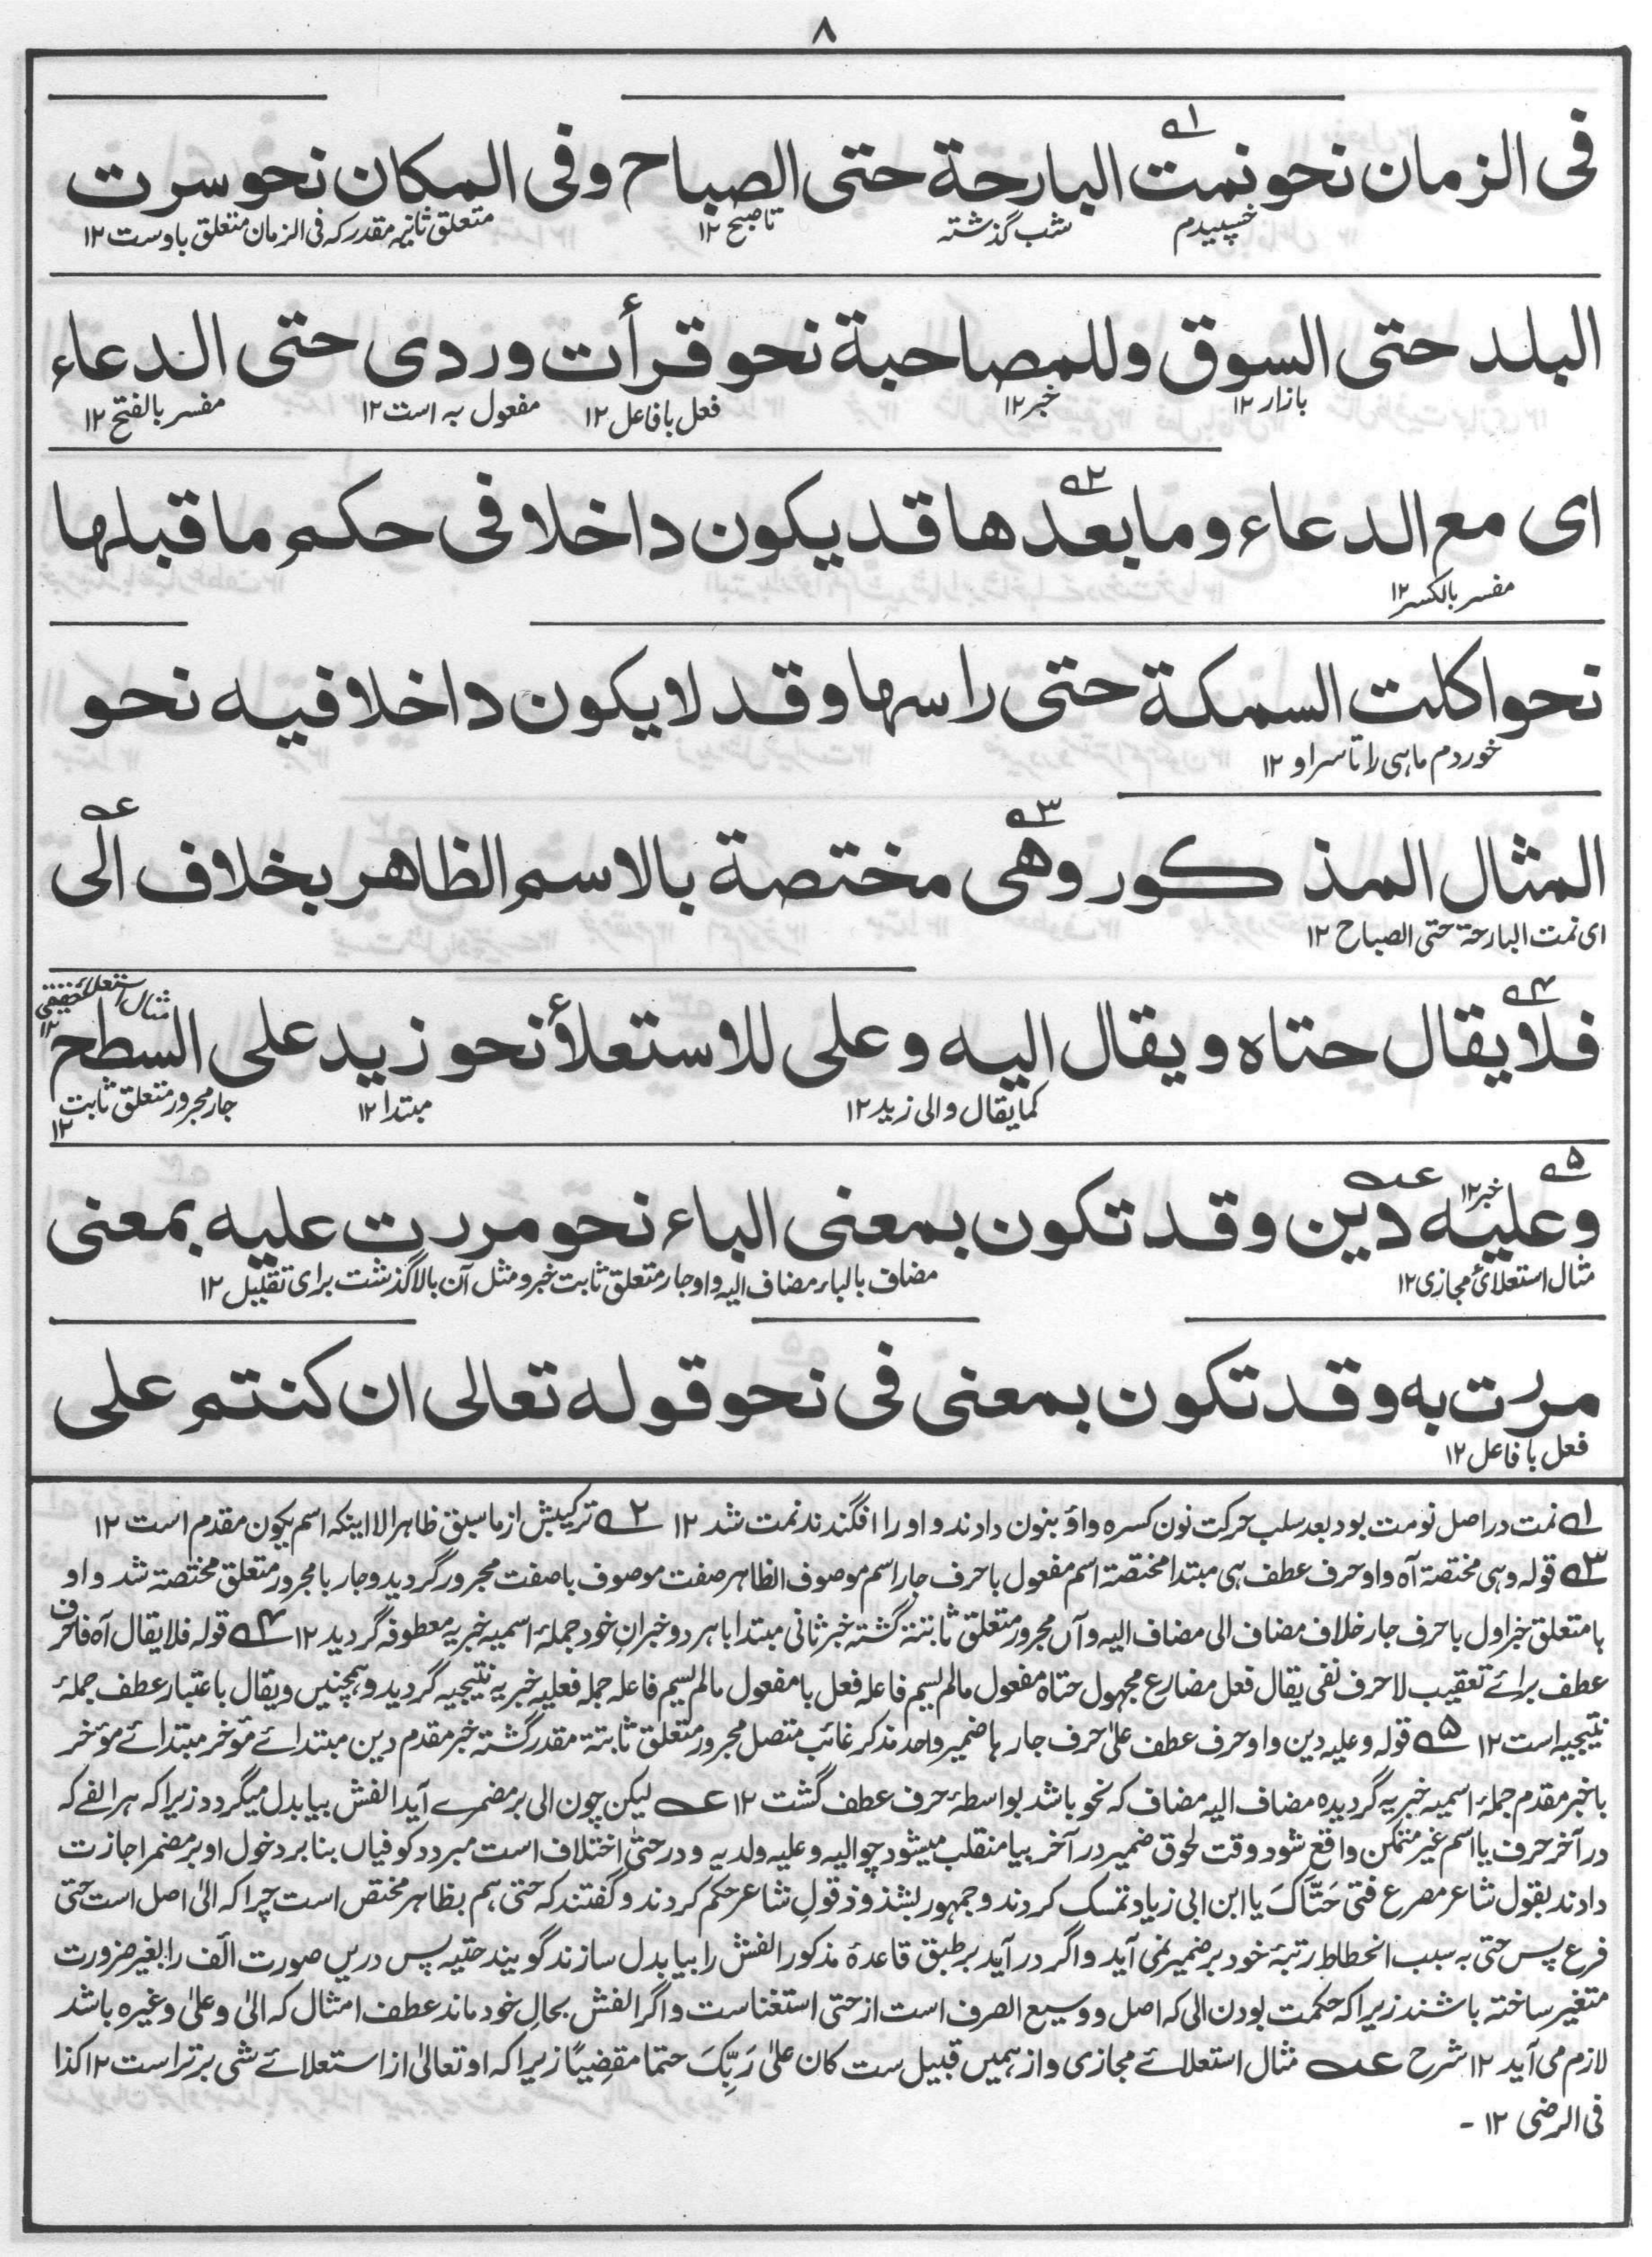 ٨
فی الزمان نحو نمت البارحة حتی الصباح وفی المکان نحو سرت
خسپیدم شب گذشتہ تا صبح ١٢ متعلق ثانیہ مقدر کہ فی الزمان متعلق باوست ١٢
البلد حتی السوق وللمصاحبة نحو قرأت وردی حتی الدعاء
بازار ١٢ خبر ١٢ فعل با فاعل ١٢ مفعول بہ است ١٢ مفسر بالفتح ١٢
ای مع الدعاء وما بعدها قد یکون داخلا فی حکم ما قبلها
مفسر بالکسر ١٢
نحو اکلت السمکة حتی راسها وقد لا یکون داخلا فیه نحو
خوردم ماہی را تا سر او ١٢
المثال المذکور وهی مختصة بالاسم الظاهر بخلاف الی
ای نمت البارحة حتی الصباح ١٢
مثال استعلائے حقیقی ١٢
فلا یقال حتاه ویقال الیه وعلی للاستعلأ نحو زید علی السطح
کما یقال والی زید ١٢ مبتدا ١٢ جار مجرور متعلق ثابت ١٢
خبر ١٢
وعلیه دین وقد تکون بمعنی الباء نحو مررت علیه بمعنی
مثال استعلائ مجازی ١٢ مضاف بالباء مضاف الیہ واو جار متعلق ثابت خبر ومثل آن بالا گذشت برای تقلیل ١٢
مررت به وقد تکون بمعنی فی نحو قوله تعالی ان کنتم علی
فعل با فاعل ١٢
١؎ نمت در اصل نومت بود بعد سلب حرکت نون کسرہ واؤ بنون دادند واو را افگندند نمت شد ١٢ ٢؎ ترکیبش از ما سبق ظاہر الا اینکہ اسم یکون مقدم است ١٢
٣؎ قولہ وہی مختصة آہ واو حرف عطف ہی مبتدا مختصة اسم مفعول با حرف جار اسم موصوف الظاہر صفت موصوف با صفت مجرور گردید وجار با مجرور متعلق مختصة شد واو
با متعلق خبر اول با حرف جار خلاف مضاف الی مضاف الیہ وآں مجرور متعلق ثابتة گشتہ خبر ثانی مبتدا با ہر دو خبران خود جملہٴ اسمیہ خبریہ معطوفہ گردید ١٢ ۴؎ قولہ فلا یقال آہ فا حرف
عطف برائے تعقیب لا حرف نفی یقال فعل مضارع مجہول حتاہ مفعول مالم یسم فاعلہ فعل با مفعول مالم یسم فاعلہ جملہ فعلیہ خبریہ نتیجیہ گردید وہمچنیں ویقال باعتبار عطف جملہٴ
نتیجیہ است ١٢ ۵؎ قولہ وعلیہ دین واو حرف عطف علیٰ حرف جار ہا ضمیر واحد مذکر غائب متصل مجرور متعلق ثابتة مقدر گشتہ خبر مقدم دین مبتدائے مؤخر مبتدائے مؤخر
با خبر مقدم جملہٴ اسمیہ خبریہ گردیدہ مضاف الیہ مضاف کہ نحو باشد بواسطہٴ حرف عطف گشت ١٢ عہ لیکن چون الی بر مضمرے آید الفش بیا بدل میگردد زیرا کہ ہر الفے کہ
در آخر حرف یا اسم غیر متمکن واقع شود وقت لحوق ضمیر در آخر بیا منقلب میشود چو الیہ وعلیہ ولدیہ ودر حتیٰ اختلاف است مبرد وکوفیاں بنا بر دخول او بر مضمر اجازت
دادند بقول شاعر مصرع فتی حَتَّاکَ یا ابن ابی زیاد تمسک کردند وجمہور بشذوذ قول شاعر حکم کردند وگفتند کہ حتی ہم بظاہر مختص است چرا کہ الیٰ اصل است حتی
فرع پس حتی بہ سبب انحطاط رتبہٴ خود بر ضمیر نمی آید واگر در آید بر طبق قاعدہٴ مذکور الفش را بیا بدل سازند گویند حتیہ پس دریں صورت الف را بغیر ضرورت
متغیر ساختہ باشند زیرا کہ حکمت بودن الی کہ اصل ووسیع الصرف است از حتی استغناست واگر الفش بحال خود ماند عطف امثال کہ الیٰ وعلیٰ وغیرہ باشد
لازم می آید ١٢ شرح عہ مثال استعلائے مجازی واز ہمیں قبیل ست کان علیٰ رَبِّکَ حتما مقضِیًا زیرا کہ او تعالیٰ از استعلائے شی برتر است ١٢ کذا
فی الرضی ١٢ -